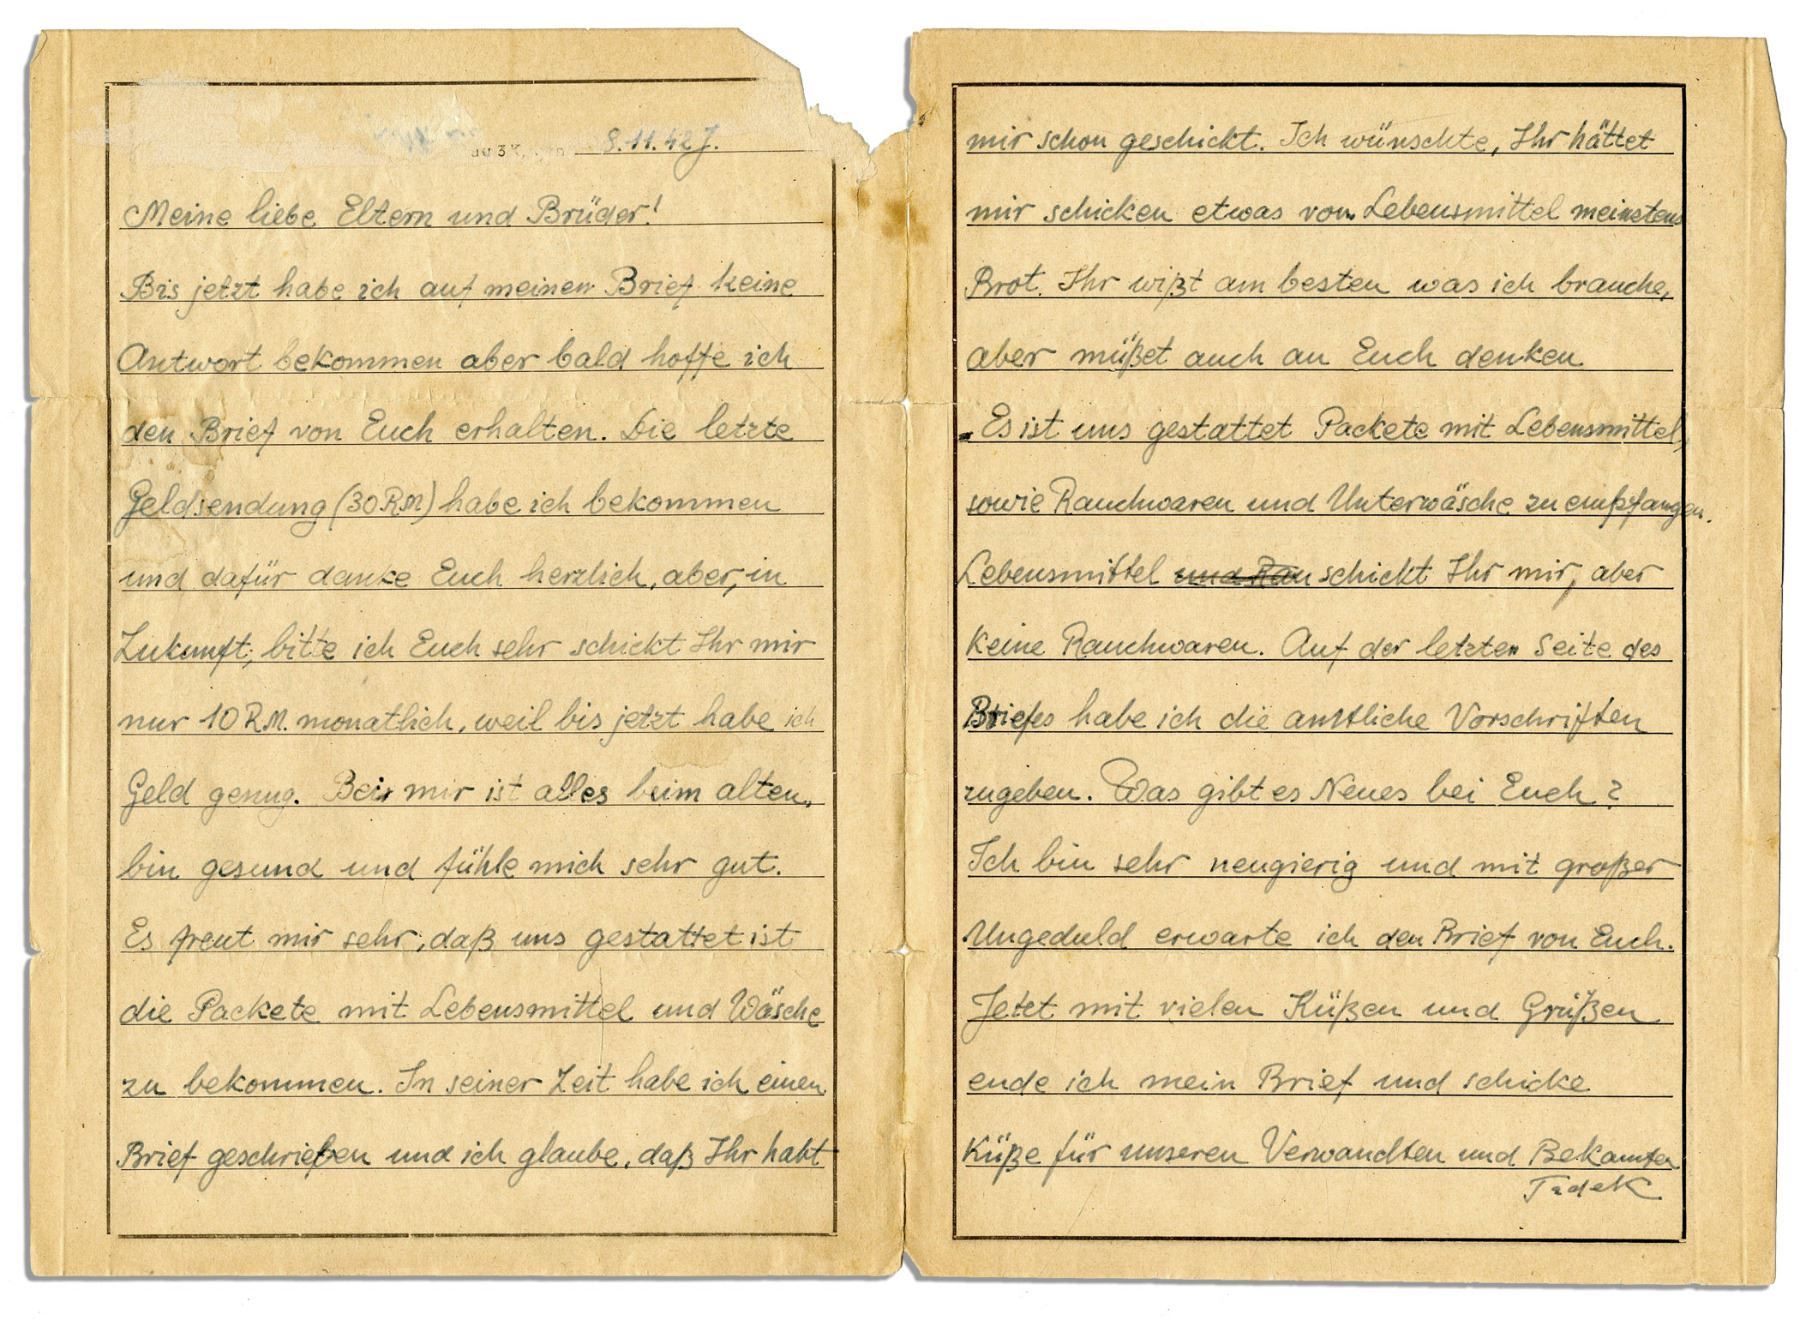 8.11.42 J.
Meine liebe Eltern und Brüder!
Bis jetzt habe ich auf meinen Brief keine
Antwort bekommen aber bald hoffe ich
den Brief von Euch erhalten. Die letzte
Geldsendung (30 RM) habe ich bekommen
und dafür danke Euch herzlich, aber, in
Zukunft, bitte ich Euch sehr schickt Ihr mir
nur 10 R.M. monatlich, weil bis jetzt habe ich
Geld genug. Bei mir ist alles beim alten,
bin gesund und fühle mich sehr gut.
Es freut mir sehr, daß uns gestattet ist
die Packete mit Lebensmittel und Wäsche
zu bekommen. In seiner Zeit habe ich einen
Brief geschrieben und ich glaube, daß Ihr habt
mir schon geschickt. Ich wünschte, Ihr hättet
mir schicken etwas von Lebensmittel meinstens
Brot. Ihr wißt am besten was ich brauche,
aber müßet auch an Euch denken.
Es ist uns gestattet Packete mit Lebensmittel,
sowie Rauchwaren und Unterwäsche zu empfangen.
Lebensmittel und Rau schickt Ihr mir, aber
keine Rauchwaren. Auf der letzten Seite des
Briefes habe ich die amtliche Vorschriften
zugeben. Was gibt es Neues bei Euch?
Ich bin sehr neugierig und mit großer
Ungeduld erwarte ich den Brief von Euch.
Jetzt mit vielen Küßen und Grüßen
ende ich mein Brief und schicke
Küße für unseren Verwandten und Bekannten
Tadek